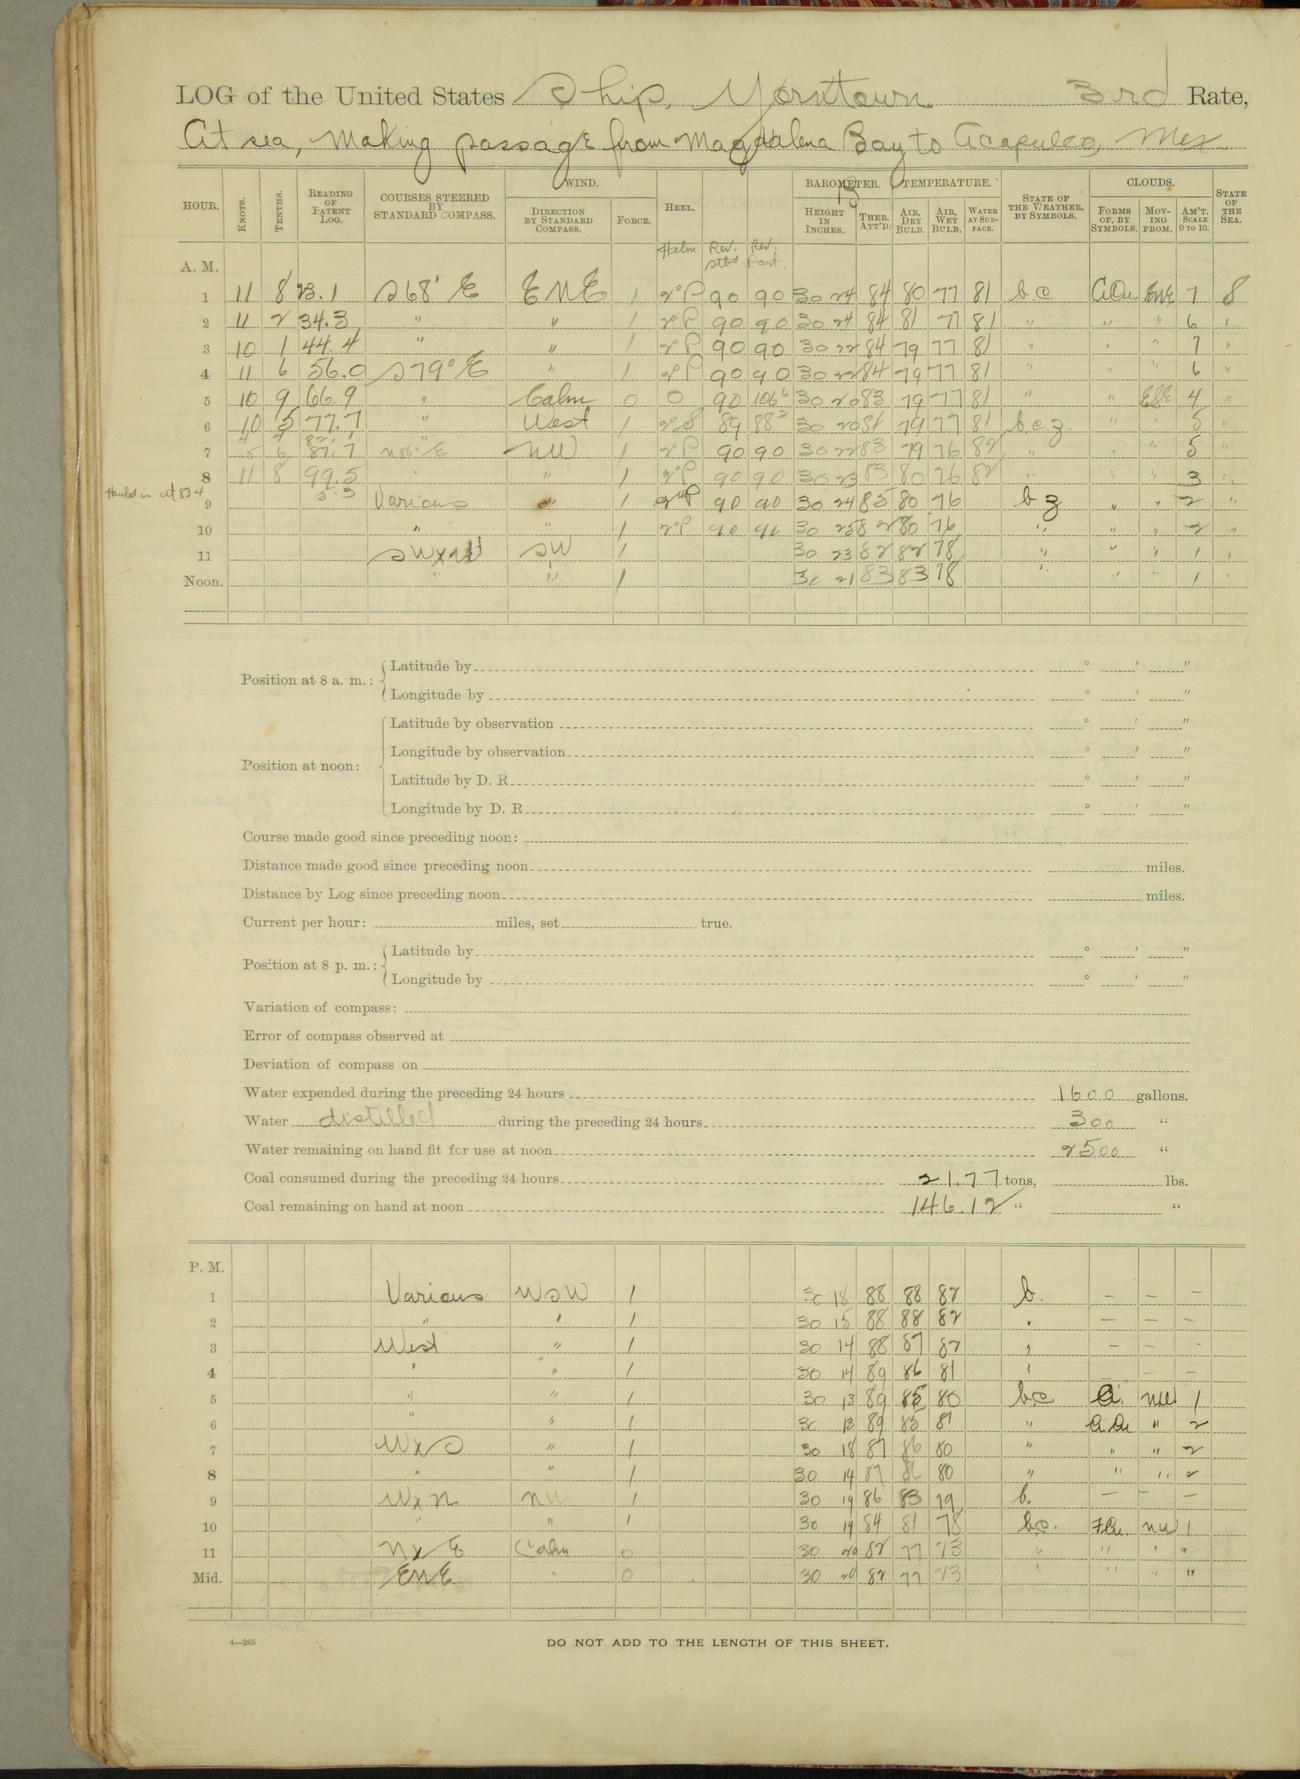 LOG of the United States Ship, Yorktown 3rd Rate,
At sea, making passage from Magdalena Bay to Acapulco, Mex
HOUR. KNOTS. TENTHS. READING OF PATENT LOG. COURSES STEERED BY STANDARD COMPASS. WIND. DIRECTION BY STANDARD COMPASS. FORCE. HEEL. BAROMETER. HEIGHT IN INCHES. THER. ATT'D. TEMPERATURE. AIR, DRY BULB. AIR, WET BULB. WATER AT SURFACE. STATE OF THE WEATHER, BY SYMBOLS. CLOUDS. FORMS OF, BY SYMBOLS. MOVING FROM. AM'T. SCALE 0 TO 10. STATE OF THE SEA.
Helm Rev. Stbd Rev. Port.
A. M.
1 11 8 23.1 S 68° E ENE 1 2°P 90 90 30 24 84 80 77 81 bc ENE 7 S
2 11 2 34.3 " " 1 2°P 90 90 30 24 84 81 77 81 " " " 6 "
3 10 1 44.4 " " 1 2°P 90 90 30 22 84 79 77 81 " " " 7 "
4 11 6 56.0 S 79° E " 1 2°P 90 90 30 22 84 79 77 81 " " " 6 "
5 10 9 66.9 " Calm 0 0 90 106⁶ 30 20 83 79 77 81 " " ESE 4 "
6 10 5 77.7 " West 1 2S 89 88³ 30 20 81 79 77 81 bcz " " 5 "
7 5 6 87.7 N86° E NW 1 2°P 90 90 30 22 83 79 76 82 " " " 5 "
8 11 8 99.5 " " 1 2°P 90 90 30 23 83 80 76 82 " " " 3 "
Hauled in at 8 34
9 3.3 Various " 1 2°P 90 90 30 24 85 80 76 bz " " 2 "
10 " " 1 2°P 90 90 30 25 82 80 76 " " " 2 "
11 SWxW SW 1 30 23 82 82 78 " " " 1 "
Noon. " " 1 30 21 83 83 78 " " " 1 "
Position at 8 a. m.: Latitude by ° ′ ″
Longitude by ° ′ ″
Position at noon: Latitude by observation ° ′ ″
Longitude by observation ° ′ ″
Latitude by D. R. ° ′ ″
Longitude by D. R. ° ′ ″
Course made good since preceding noon:
Distance made good since preceding noon miles.
Distance by Log since preceding noon miles.
Current per hour: miles, set true.
Position at 8 p. m.: Latitude by ° ′ ″
Longitude by ° ′ ″
Variation of compass:
Error of compass observed at
Deviation of compass on
Water expended during the preceding 24 hours 1600 gallons.
Water distilled during the preceding 24 hours 300 "
Water remaining on hand fit for use at noon 2500 "
Coal consumed during the preceding 24 hours 21.77 tons, lbs.
Coal remaining on hand at noon 146.12 " "
P. M.
1 Various WSW 1 30 18 88 88 82 b. — — —
2 " " 1 30 15 88 88 82 " — — —
3 West " 1 30 14 88 87 82 " — — —
4 " " 1 30 14 89 86 81 " —
5 " " 1 30 13 89 85 80 bc Ci. NW 1
6 " " 1 30 13 89 85 81 " " 2
7 WxS " 1 30 18 87 86 80 " " " 2
8 " " 1 30 14 87 86 80 " " " 2
9 WxN NW 1 30 19 86 83 79 b. — — —
10 " " 1 30 19 84 81 78 bc. NW 1
11 NxE Calm 0 30 20 82 77 73 " " " "
Mid. ENE " 0 30 20 82 77 73 " " " "
4—265
DO NOT ADD TO THE LENGTH OF THIS SHEET.